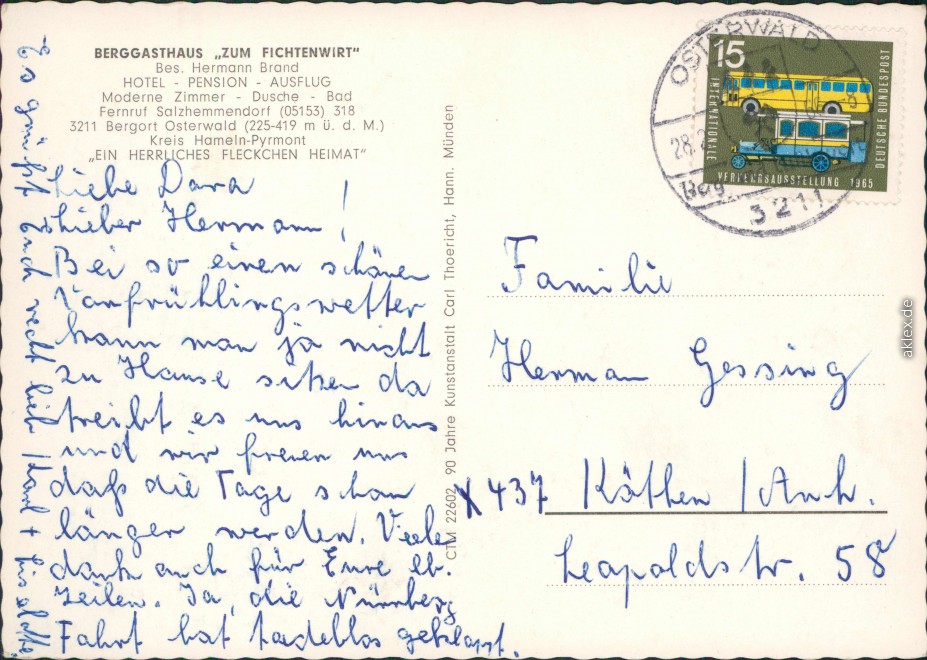 BERGGASTHAUS „ZUM FICHTENWIRT"
Bes. Hermann Brand
HOTEL - PENSION - AUSFLUG
Moderne Zimmer - Dusche - Bad
Fernruf Salzhemmendorf (05153) 318
3211 Bergort Osterwald (225-419 m ü. d. M.)
Kreis Hameln-Pyrmont
„EIN HERRLICHES FLECKCHEN HEIMAT"
Liebe Dora
Lieber Hermann!
Bei so einen schönen
Vorfrühlingswetter
kann man ja nicht
zu Hause sitzen da
treibt es uns hinaus
und wir freuen uns
daß die Tage schon
länger werden. Viele
dank auch für Eure lb.
Zeilen. Ja, die Nürnberg
Fahrt hat tadellos geklappt.
Es grüßt Euch recht lieb Karl + Liselotte
CTM 22602 90 Jahre Kunstanstalt Carl Thoericht, Hann. Münden
OSTERWALD
28.
3211
15
INTERNATIONALE
VERKEHRSAUSSTELLUNG 1965
DEUTSCHE BUNDESPOST
Familie
Herman Gessing
X 437 Köthen /Anh.
Leopoldstr. 58
aklex.de